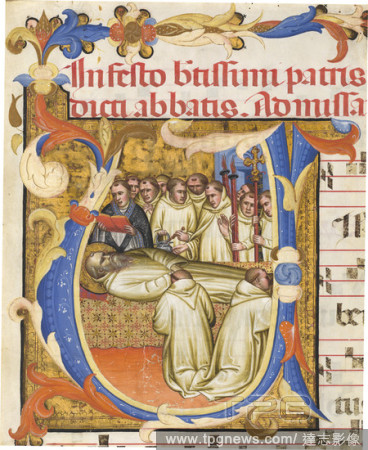 In festo b'tissimi patris
dicti abbatis. Ad missa
www.tpgnews.com/達志影像